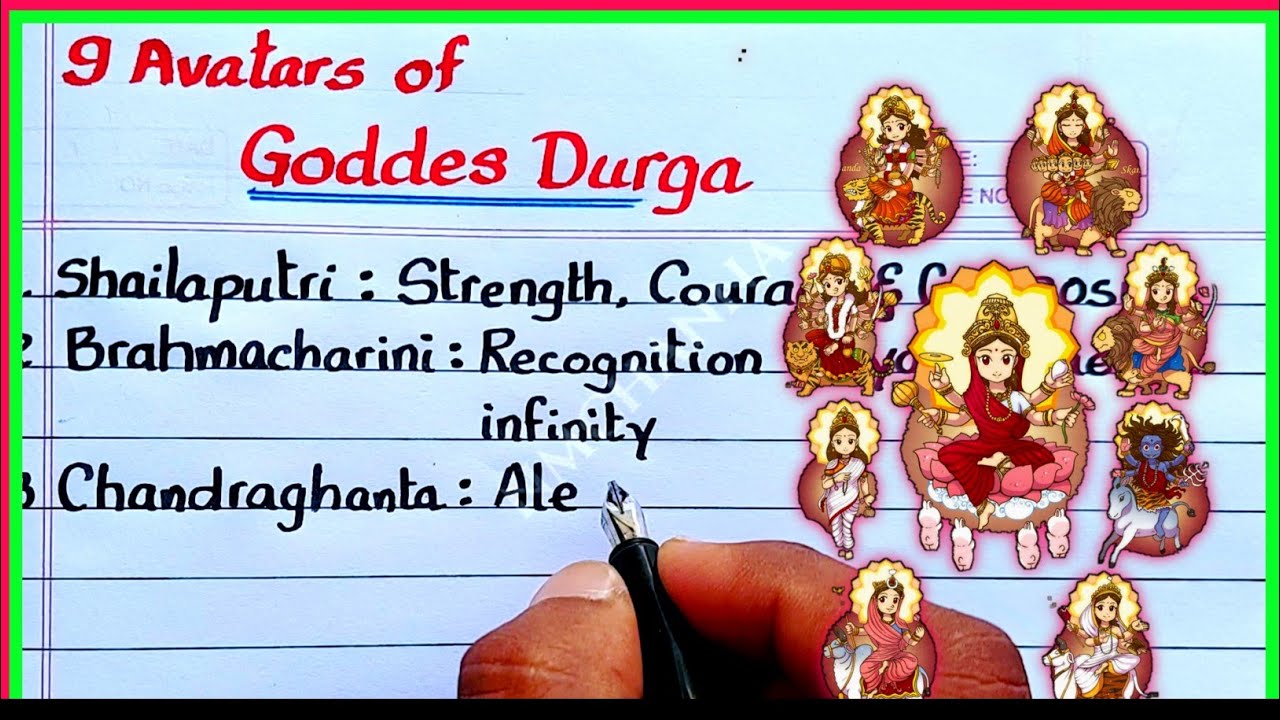 9 Avatars of
Goddes Durga
Shailaputri : Strength, Coura
Brahmacharini : Recognition
infinity
3 Chandraghanta : Ale